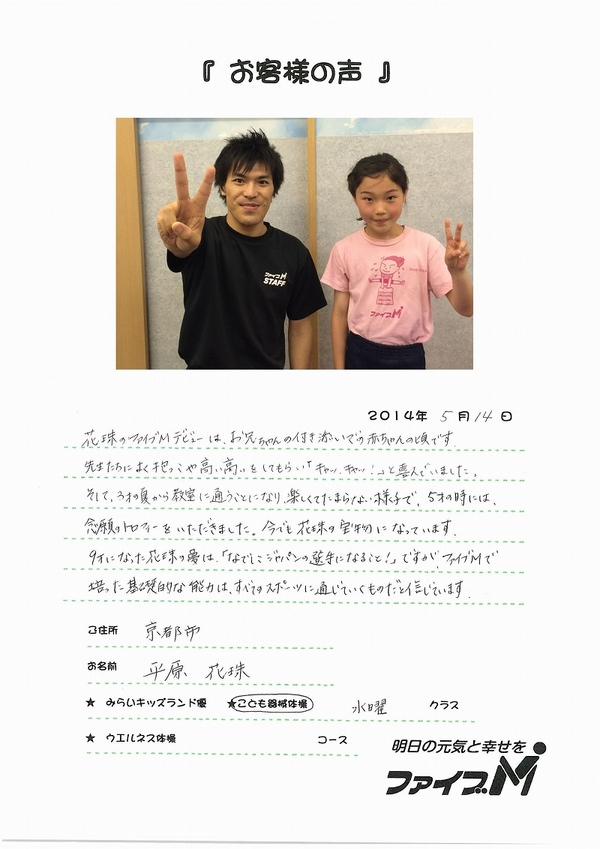 『 お客様の声 』
ファイブM
STAFF
ファイブM
2014年 5月14日
花珠のファイブMデビューは、お兄ちゃんの付き添いでの赤ちゃんの頃です。
先生たちによく抱っこや高い高いをしてもらい「キャッ、キャッ!」と喜んでいました。
そして、3才の夏から教室に通うことになり、楽しくてたまらない様子で、5才の時には、
念願のトロフィーをいただきました。今でも花珠の宝物になっています。
9才になった花珠の夢は、「なでしこジャパンの選手になること!」ですが、ファイブMで
培った基礎的な能力は、すべてのスポーツに通じていくものだと信じています。
ご住所 京都市
お名前 平原 花珠
★ みらいキッズランド優 ★こども器械体操 水曜 クラス
★ ウエルネス体操 コース
明日の元気と幸せを
ファイブM